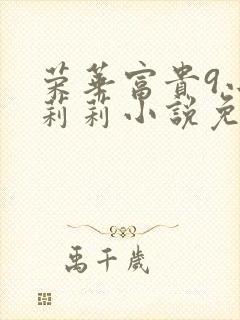 荣华富貴9.
莉莉小說免
禹千歲